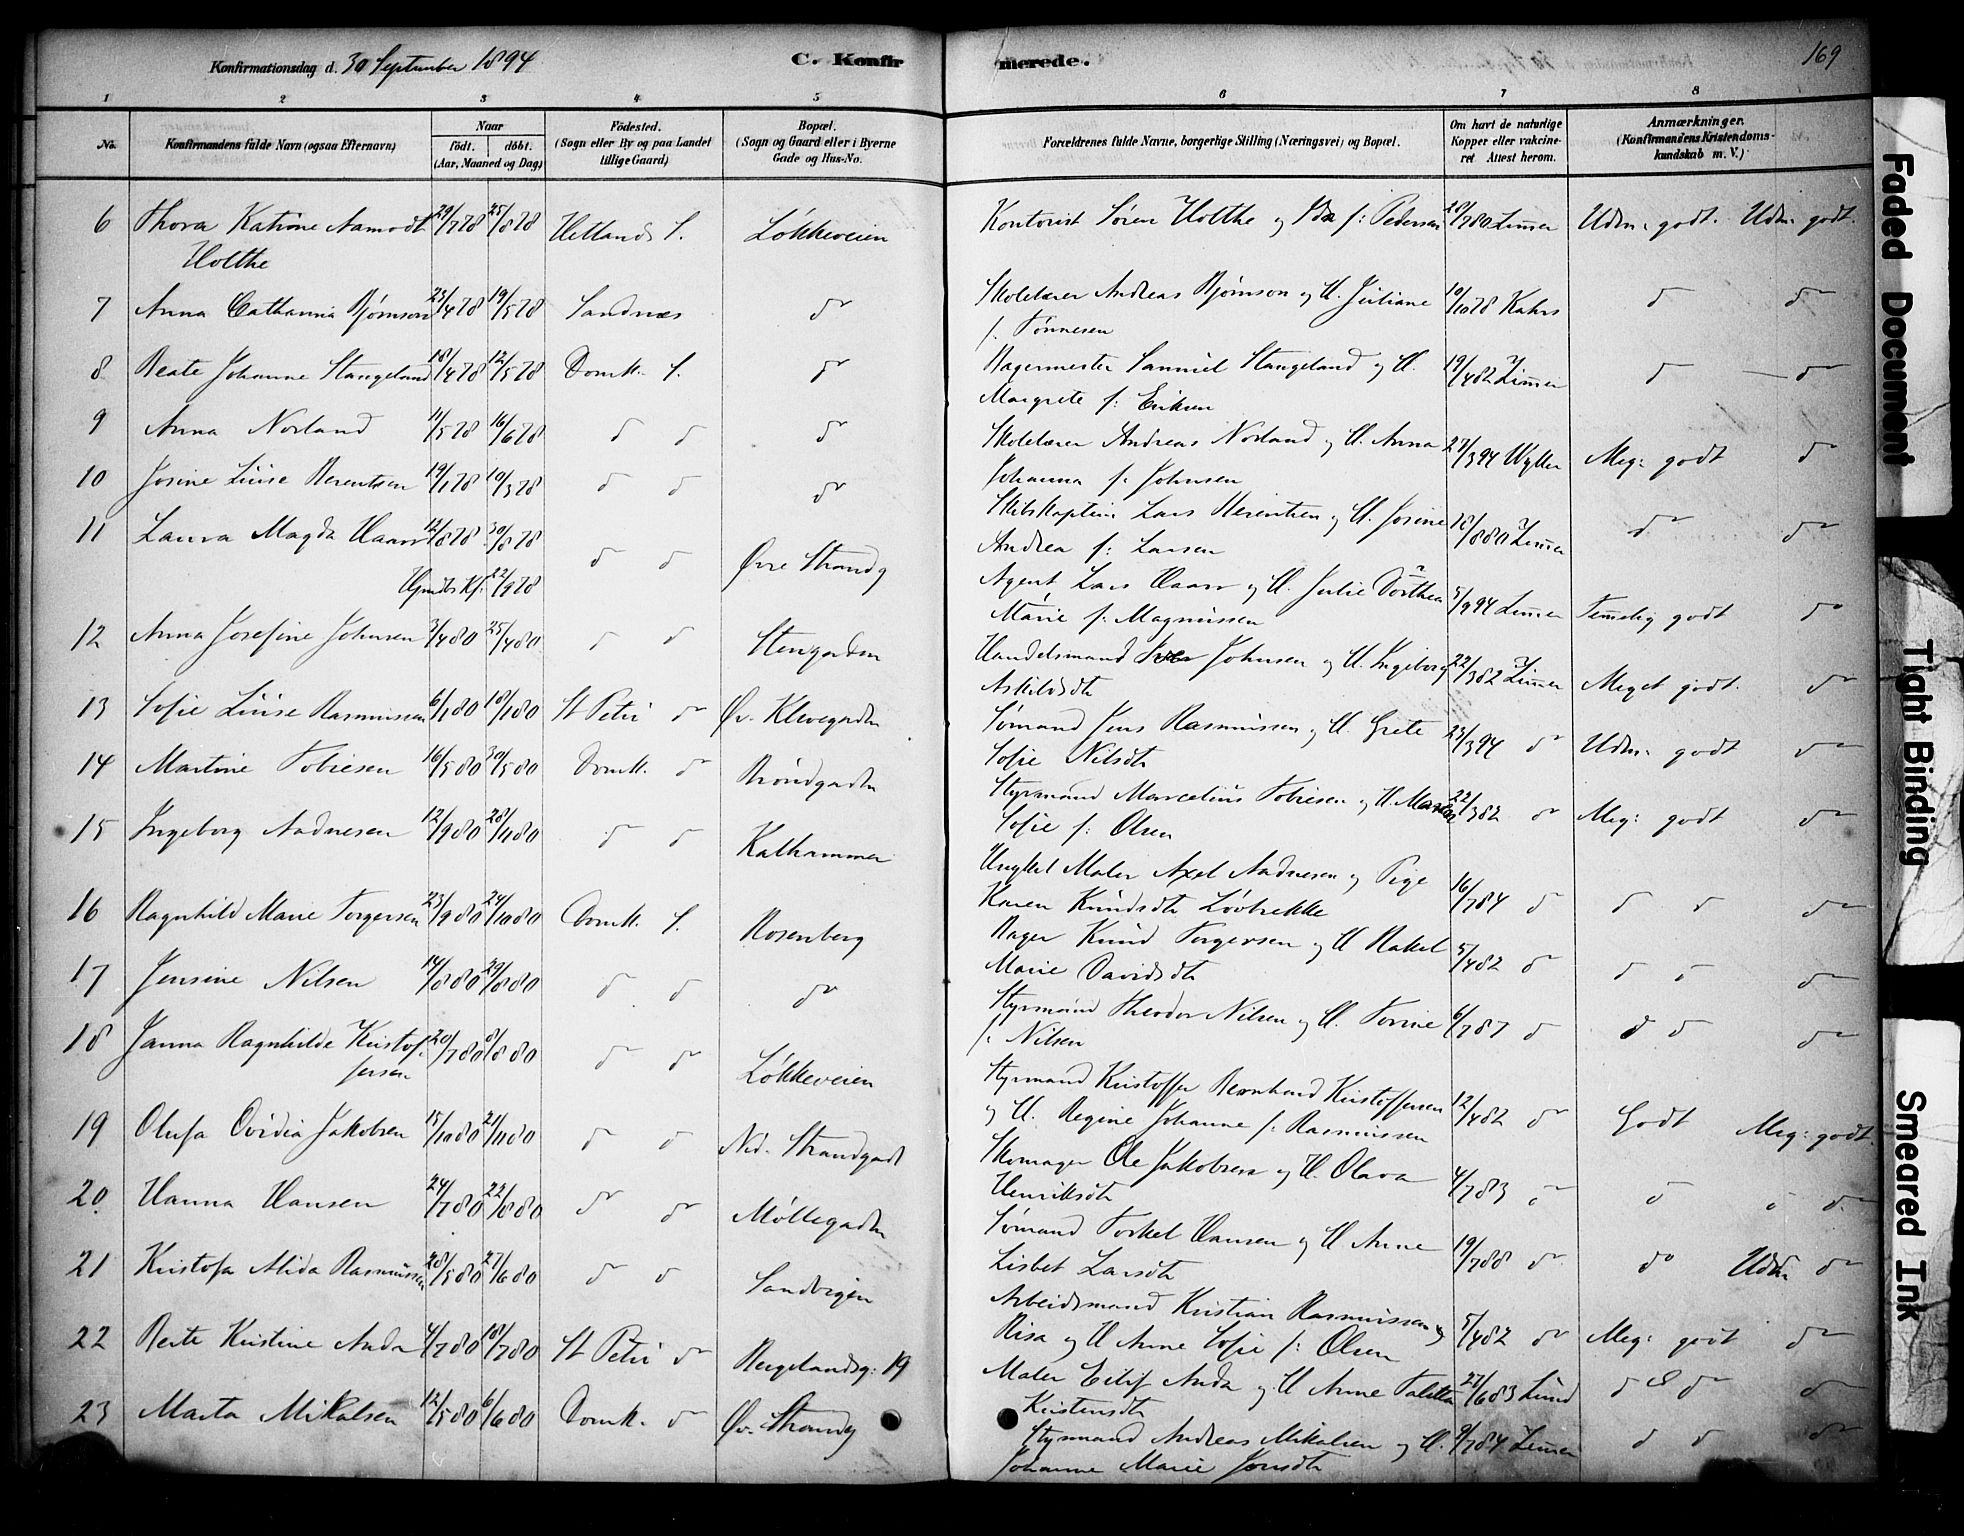 Konfirmationsdag d. 30 September 1894
C. Konfirmerede.
169
1 2 3 4 5 6 7 8
No. Konfirmandens fulde Navn (ogsaa Efternavn) Naar födt. döbt. (Aar, Maaned og Dag) Födested. (Sogn eller By og paa Landet tillige Gaard) Bopæl. (Sogn og Gaard eller i Byerne Gade og Hus-No. Forældrenes fulde Navne, borgerlige Stilling (Næringsvei) og Bopæl. Om havt de naturlige Kopper eller vakcineret Attest herom. Anmærkninger. (Konfirmandens Kristendomskundskab m. V.)
6 Thora Katrine Aamodt 29/7 78 25/8 78 Hetlands S. Løkkeveien Kontorist Sören Holthe og Ida f: Pedersen 28/7 80 Zimmer Udm: godt. Udm: godt.
Holthe
7 Anna Cathanna Bjørnson 23/4 78 19/5 78 Sandnes do Skolelærer Andreas Bjørnson og H. Juliane 10/10 78 Kahrs do do
f. Tönnesen
8 Beate Johanne Stangeland 18/4 78 12/5 78 Domk. S. do Bagermester Samuel Stangeland og H. 19/4 82 Zimmer do do
Margrete f: Eriksen
9 Anna Norland 11/5 78 16/6 78 do do do Skolelærer Andreas Norland og H. Anna 27/3 94 Wyller Meg: godt do
Johanna f. Johnsen
10 Josine Luise Berentsen 19/1 78 10/3 78 do do do Skibskaptein Lars Berentsen og H. Josine 18/8 80 Zimmer do do
Andrea f: Larsen
11 Laura Magda Haarr 12/8 78 30/8 78 do do Øvre Strandg Agent Lars Haarr og H. Julie Dorthea 5/9 94 Zimmer Temmelig godt do
Hjmdbt Kf. 22/9 78
Marie f. Magnussen
12 Anna Josefine Johnsen 3/4 80 25/4 80 do do Stengaden Handelsmand Johnsen og H. Ingeborg 22/3 82 Zimmer Meget godt. do
Askildsdtr
13 Sofie Luise Rasmussen 6/1 80 18/1 80 St Petri do Øv. Klevegaden Sømand Jens Rasmussen og H. Grete 23/3 94 do Udm: godt do
Sofie Nilsdtr
14 Martine Tobiesen 16/5 80 30/5 80 Domk. do Brøndgaden Styrmand Marcelius Tobiesen og H. Maren 22/3 82 do Meg: godt do
Sofie f: Olsen
15 Ingeborg Aadnesen 12/9 80 28/11 80 do do Kathammer Ungkel Maler Axel Aadnesen og Pige 16/7 84 do do do do
Karen Knudsdtr Lövbrekke
16 Ragnhild Marie Torgersen 23/9 80 24/10 80 Domk. S. Rosenberg Bager Knud Torgersen og H Rakel 5/4 82 do do do do
Marie Davidsdtr
17 Jensine Nilsen 14/8 80 29/8 80 do do do Styrmand Theodor Nilsen og H. Torine 6/7 87 do do do do
f. Nilsen
18 Janna Ragnhilde Kristof- 20/7 80 8/8 80 do do Løkkeveien Styrmand Kristoffer Bernhard Kristoffersen 12/4 82 do Godt Meg: godt.
fersen
og H. Regine Johanne f: Rasmussen
19 Olufa Ovidia Jakobsen 15/10 80 21/11 80 do do Ned. Strandgade Skomager Ole Jakobsen og H. Olava 4/7 83 do do do do
Henriksdtr
20. Hanna Hansen 24/7 80 22/8 80 do do Møllegaden Sømand Torkel Hansen og H Anne 19/7 88 do do Udm do
Lisbet Larsdtr
21 Kristofa Alida Rasmussen 28/5 80 27/6 80 do do Sandvigen Arbeidsmand Kristian Rasmussen 5/4 82 do Meg: godt do
Risa og H Anne Sofie f: Olsen
22 Berte Kristine Anda 4/7 80 18/7 80 St Petri do Bergelandsg: 19 Maler Eilif Anda og H Anne Talette 27/6 83 Lund do do do
Kristensdtr
23 Marta Mikalsen 12/5 80 6/6 80 Domk. do Øv. Strandg Styrmand Andreas Mikalsen og H. 9/7 84 Zimmer do do do
Johanne Marie Jonsdtr
Faded Document
Tight Binding
Smeared Ink